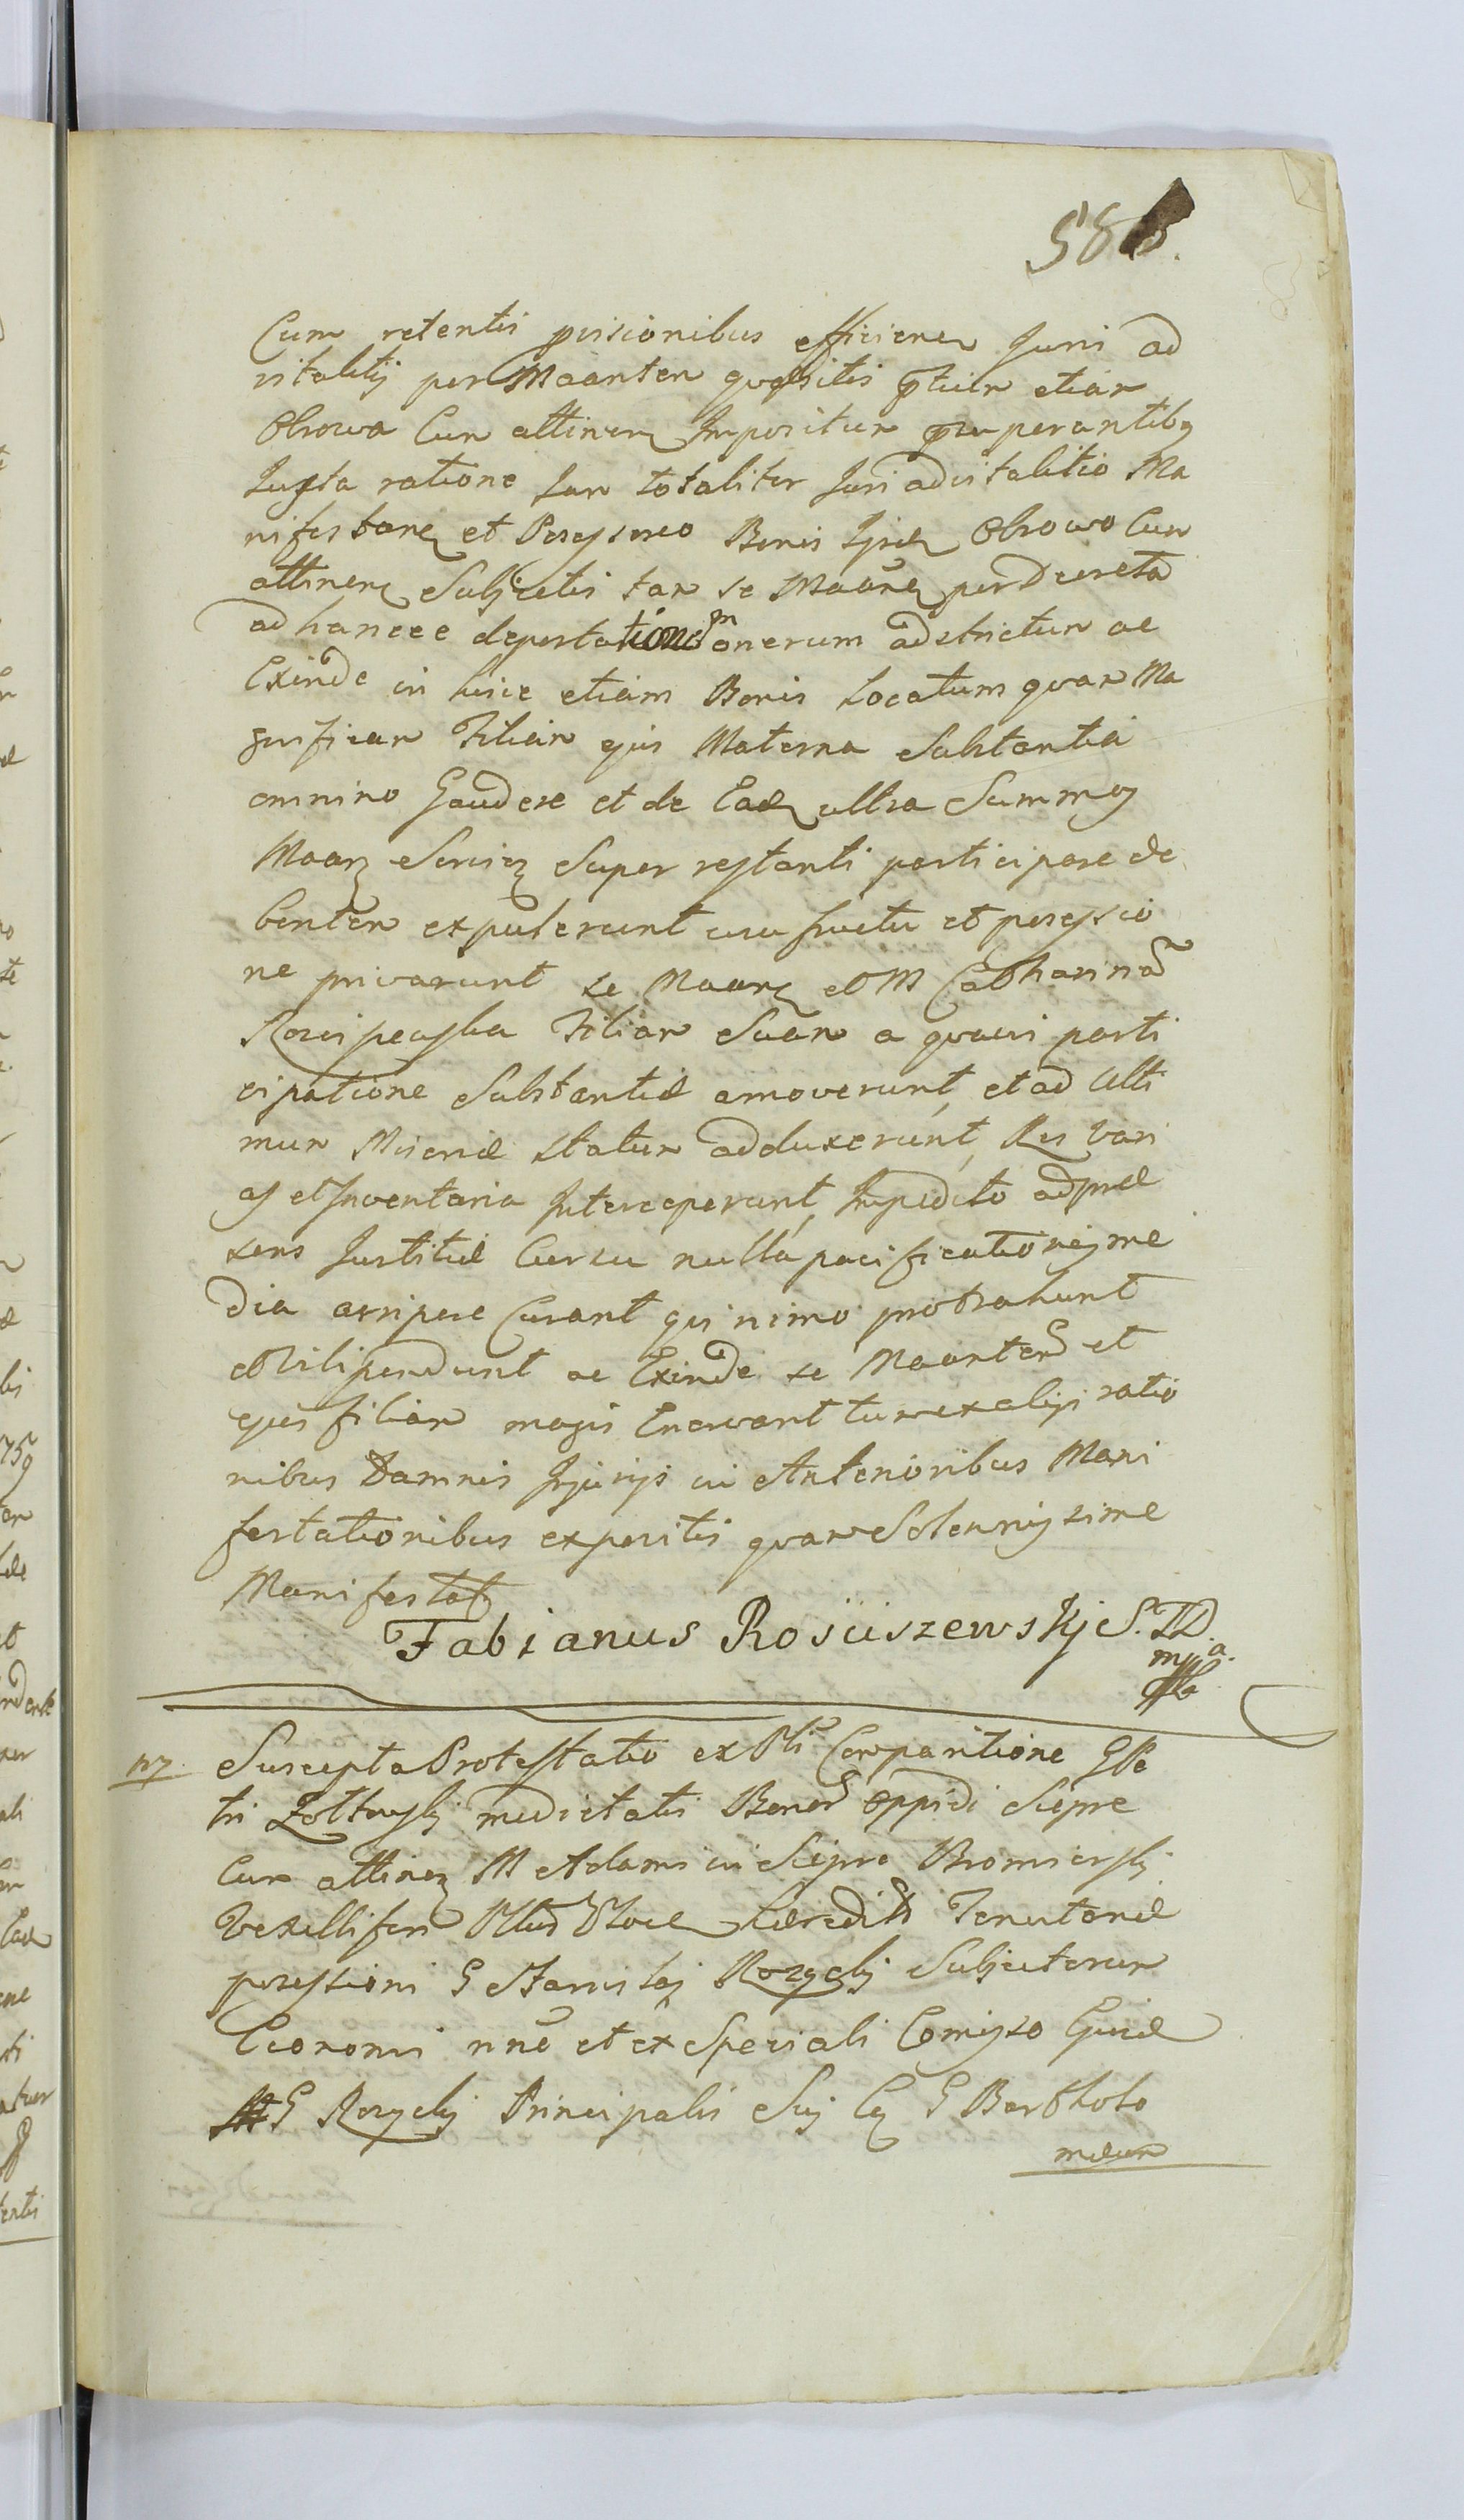 588.
Cum retentis provisionibus efficiens Juri ad
vitalitij per Maanten quæsitis ptuir etiam
Obrowa Cum attinen Impositum præperantibq
Juxta ratione tam totaliter Juri advitalitio Ma
nifestane et Possessorio Bonis Ipsis Obrowo Cum
attinen Subjectis tam se Maane per Decreta
ad hancce deportationem onerum adstrictum ac
Exinde in hisce etiam Bonis Locatum quam Ma
gnificam Filiam ejus Materna Substantia
omnino Gaudere et de Eade ultra Summas
Maan Servien Super restanti participare de
bentem expulerunt usu fructu et possessio
ne privarunt se Maane et M Catharinam
Roscipeuska Filiam Suam a quavis parti
cipatione Substantiæ amoverunt, et ad Ulti
mum Miseriæ statum adduxerunt, Res Vari
as et Inventaria Interceperunt, Impedito ad præ
sens Justitiæ Cursu nulla pacificationis me
dia arripere Curant qui nimo protrahunt
et Vilipendunt ac Exinde se Maantem et
ejus filiam magis Enervant tum ex alijs ratio
nibus Damnis Injurijs in Anterioribus Mani
festationibus expositis quam Solennissime
Manifestat
Fabianus Rosciszewskj S. TD.
mpp a.
117. Suscepta Protestatio ex Pli Comparitione G Pe
tri Zołtowskj medietatis Bonor oppidi Sieprc
Cum attinen M Adami in Sieprc Bromierskj
Vexilliferi Pltus Ploce hæredit Tenutariæ
possessioni G Stanislaj Rozyckj Subjectorum
Economi nne et ex Speciali Comisso Gnsæ
G Rozyckj Principalis Suj Ca G Bartholo
mæum